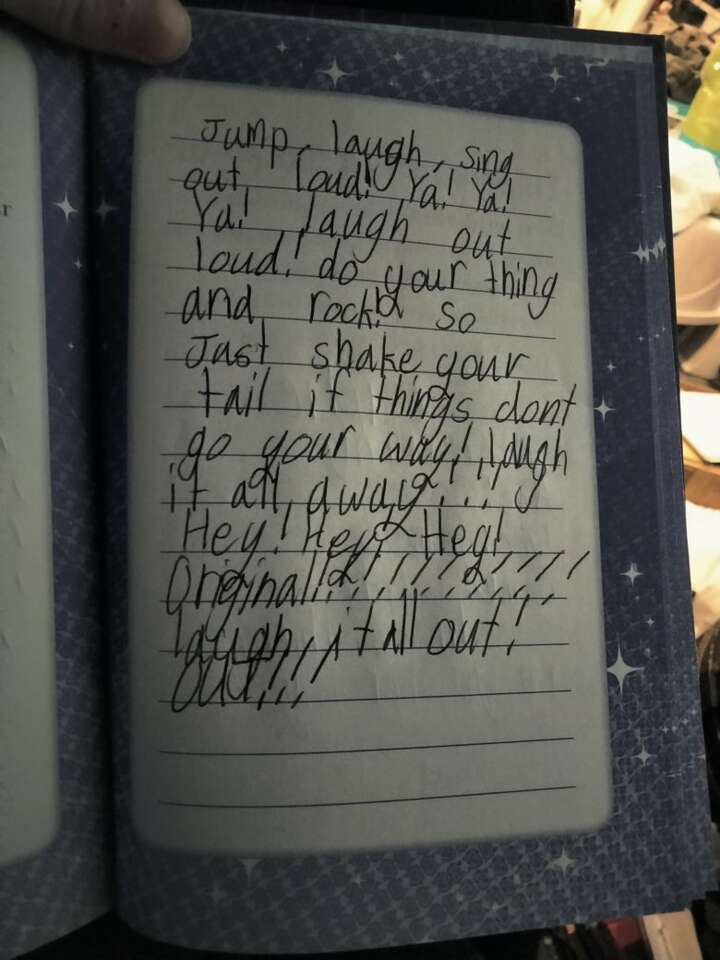 Jump, laugh, sing
out loud! Ya! Ya!
Ya! laugh out
loud! do your thing
and rock! so
Just shake your
tail if things dont
go your way! laugh
it all away!...
Hey! Hey! Hey!
Original!!!!!!!!!!
laugh it all out!
Out!!!
r